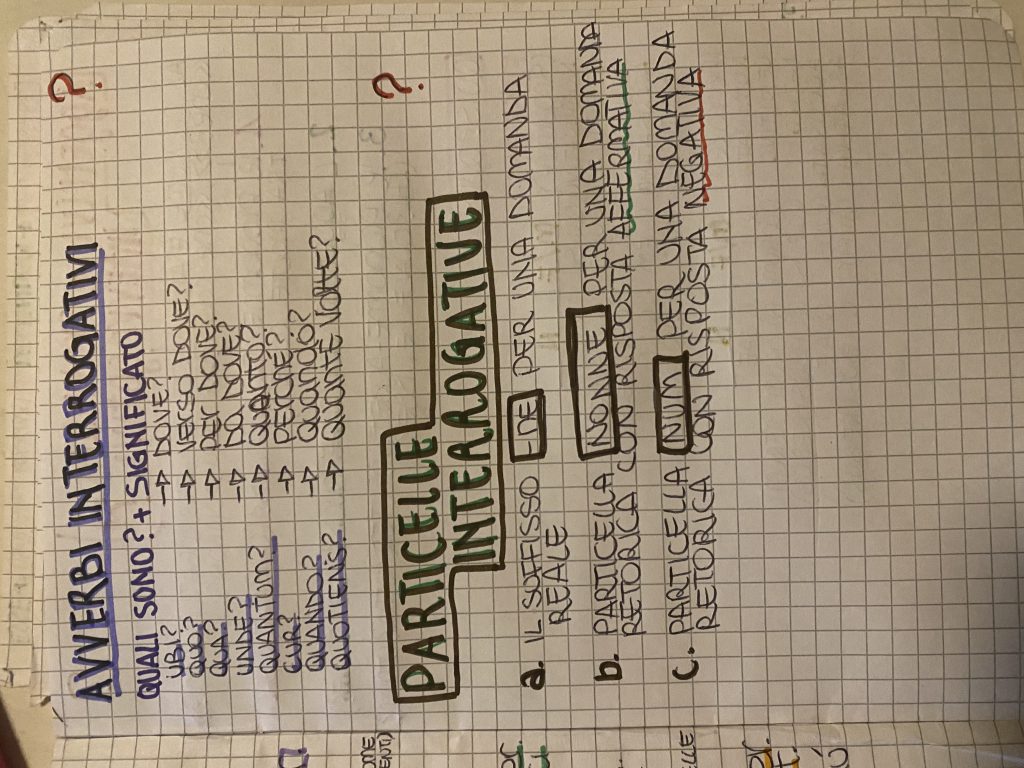 AVVERBI INTERROGATIVI ?
QUALI SONO? + SIGNIFICATO
UBI? → DOVE?
QUO? → VERSO DOVE?
QUA? → PER DOVE?
UNDE? → DA DOVE?
QUANTUM? → QUANTO?
CUR? → PERCHÉ?
QUANDO? → QUANDO?
QUOTIENS? → QUANTE VOLTE?
PARTICELLE ?
INTERROGATIVE
a. IL SUFFISSO ENE PER UNA DOMANDA
REALE
b. PARTICELLA NONNE PER UNA DOMANDA
RETORICA CON RISPOSTA AFFERMATIVA
c. PARTICELLA NUM PER UNA DOMANDA
RETORICA CON RISPOSTA NEGATIVA